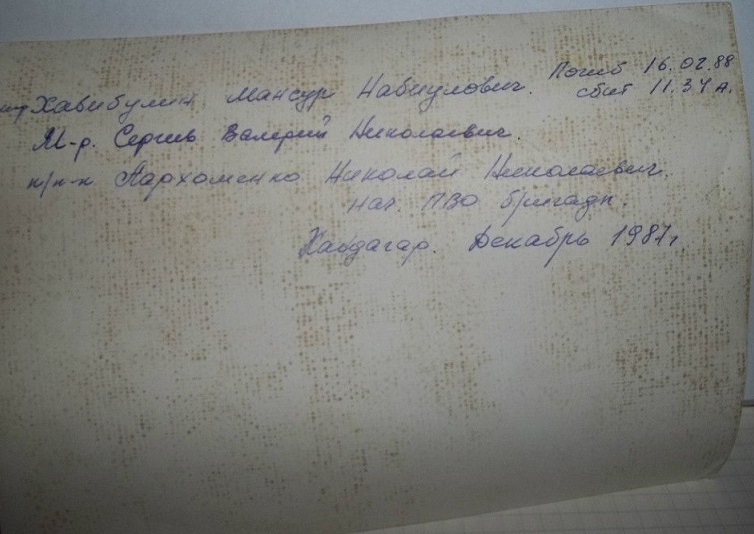 Хабибулин Мансур Набиулович. Погиб 16.02.88
сбит 11.34 д.
М-р. Сергиь Валерий Николаевич.
п/п-к Пархоменко Николай Николаевич.
нач. ПВО бригады.
Кандагар. Декабрь 1987г